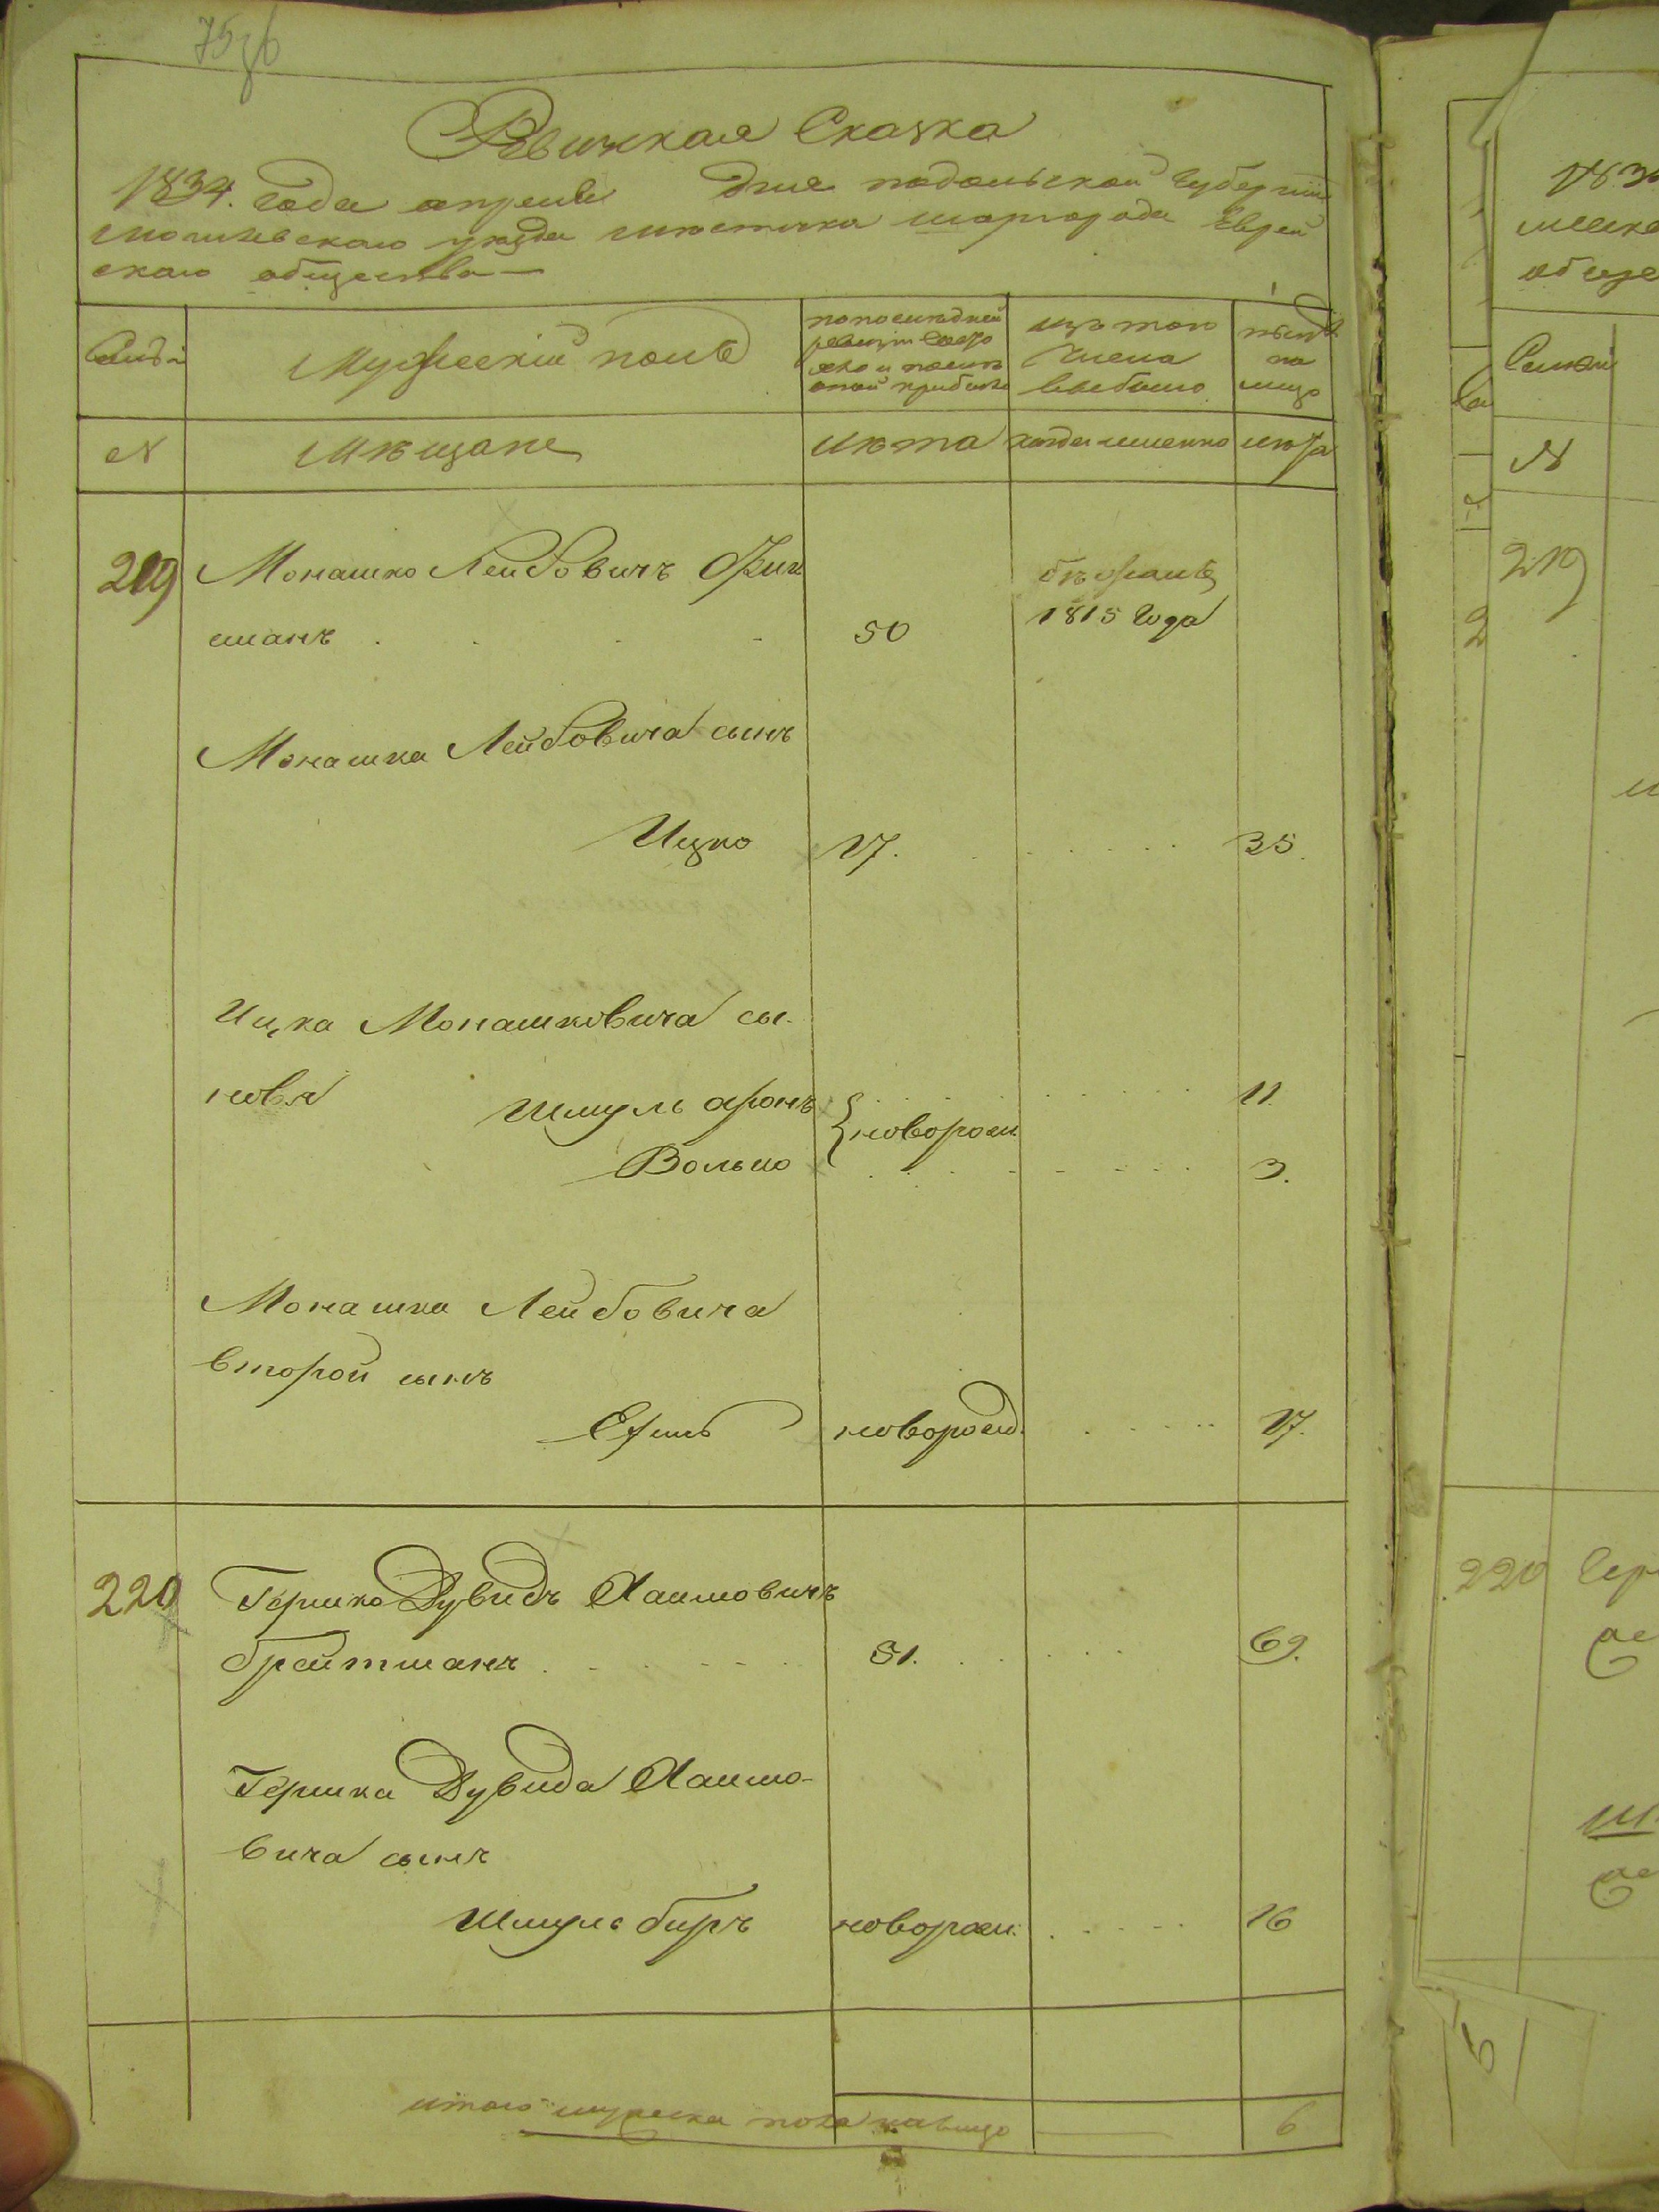 75 об
Ревижкая Сказка
1834. года апреля дня подольской Губернии
могилевскаго уезда местечка шаргорода Еврей
скаго общества
Семьи
Мужескій полъ
по последней
ревизіи состо
яло и после
оной прибыло
изъ того
числа
выбыло
ныне
на
лицо
№
мещане
лета
когда именно
лета
219
Монашко Лейбовичъ Фиш
манъ
50
бежалъ
1815 года
Монашка Лейбовича сынъ
Ицко
17.
35.
Ицка Монашковича сы-
новя
Шмуль аронъ
11.
новорож.
Волько
3.
Монашка Лейбовича
второй сынъ
новорожд.
17.
220
Гершко Дувидъ Хаимовичъ
бройтманъ
51.
69.
Гершка Дувида Хаимо-
вича сынъ
Шмуль беръ
новорож.
16
итого мужеска пола налицо
6
183
обще
Семьи
№
219
220
Гер